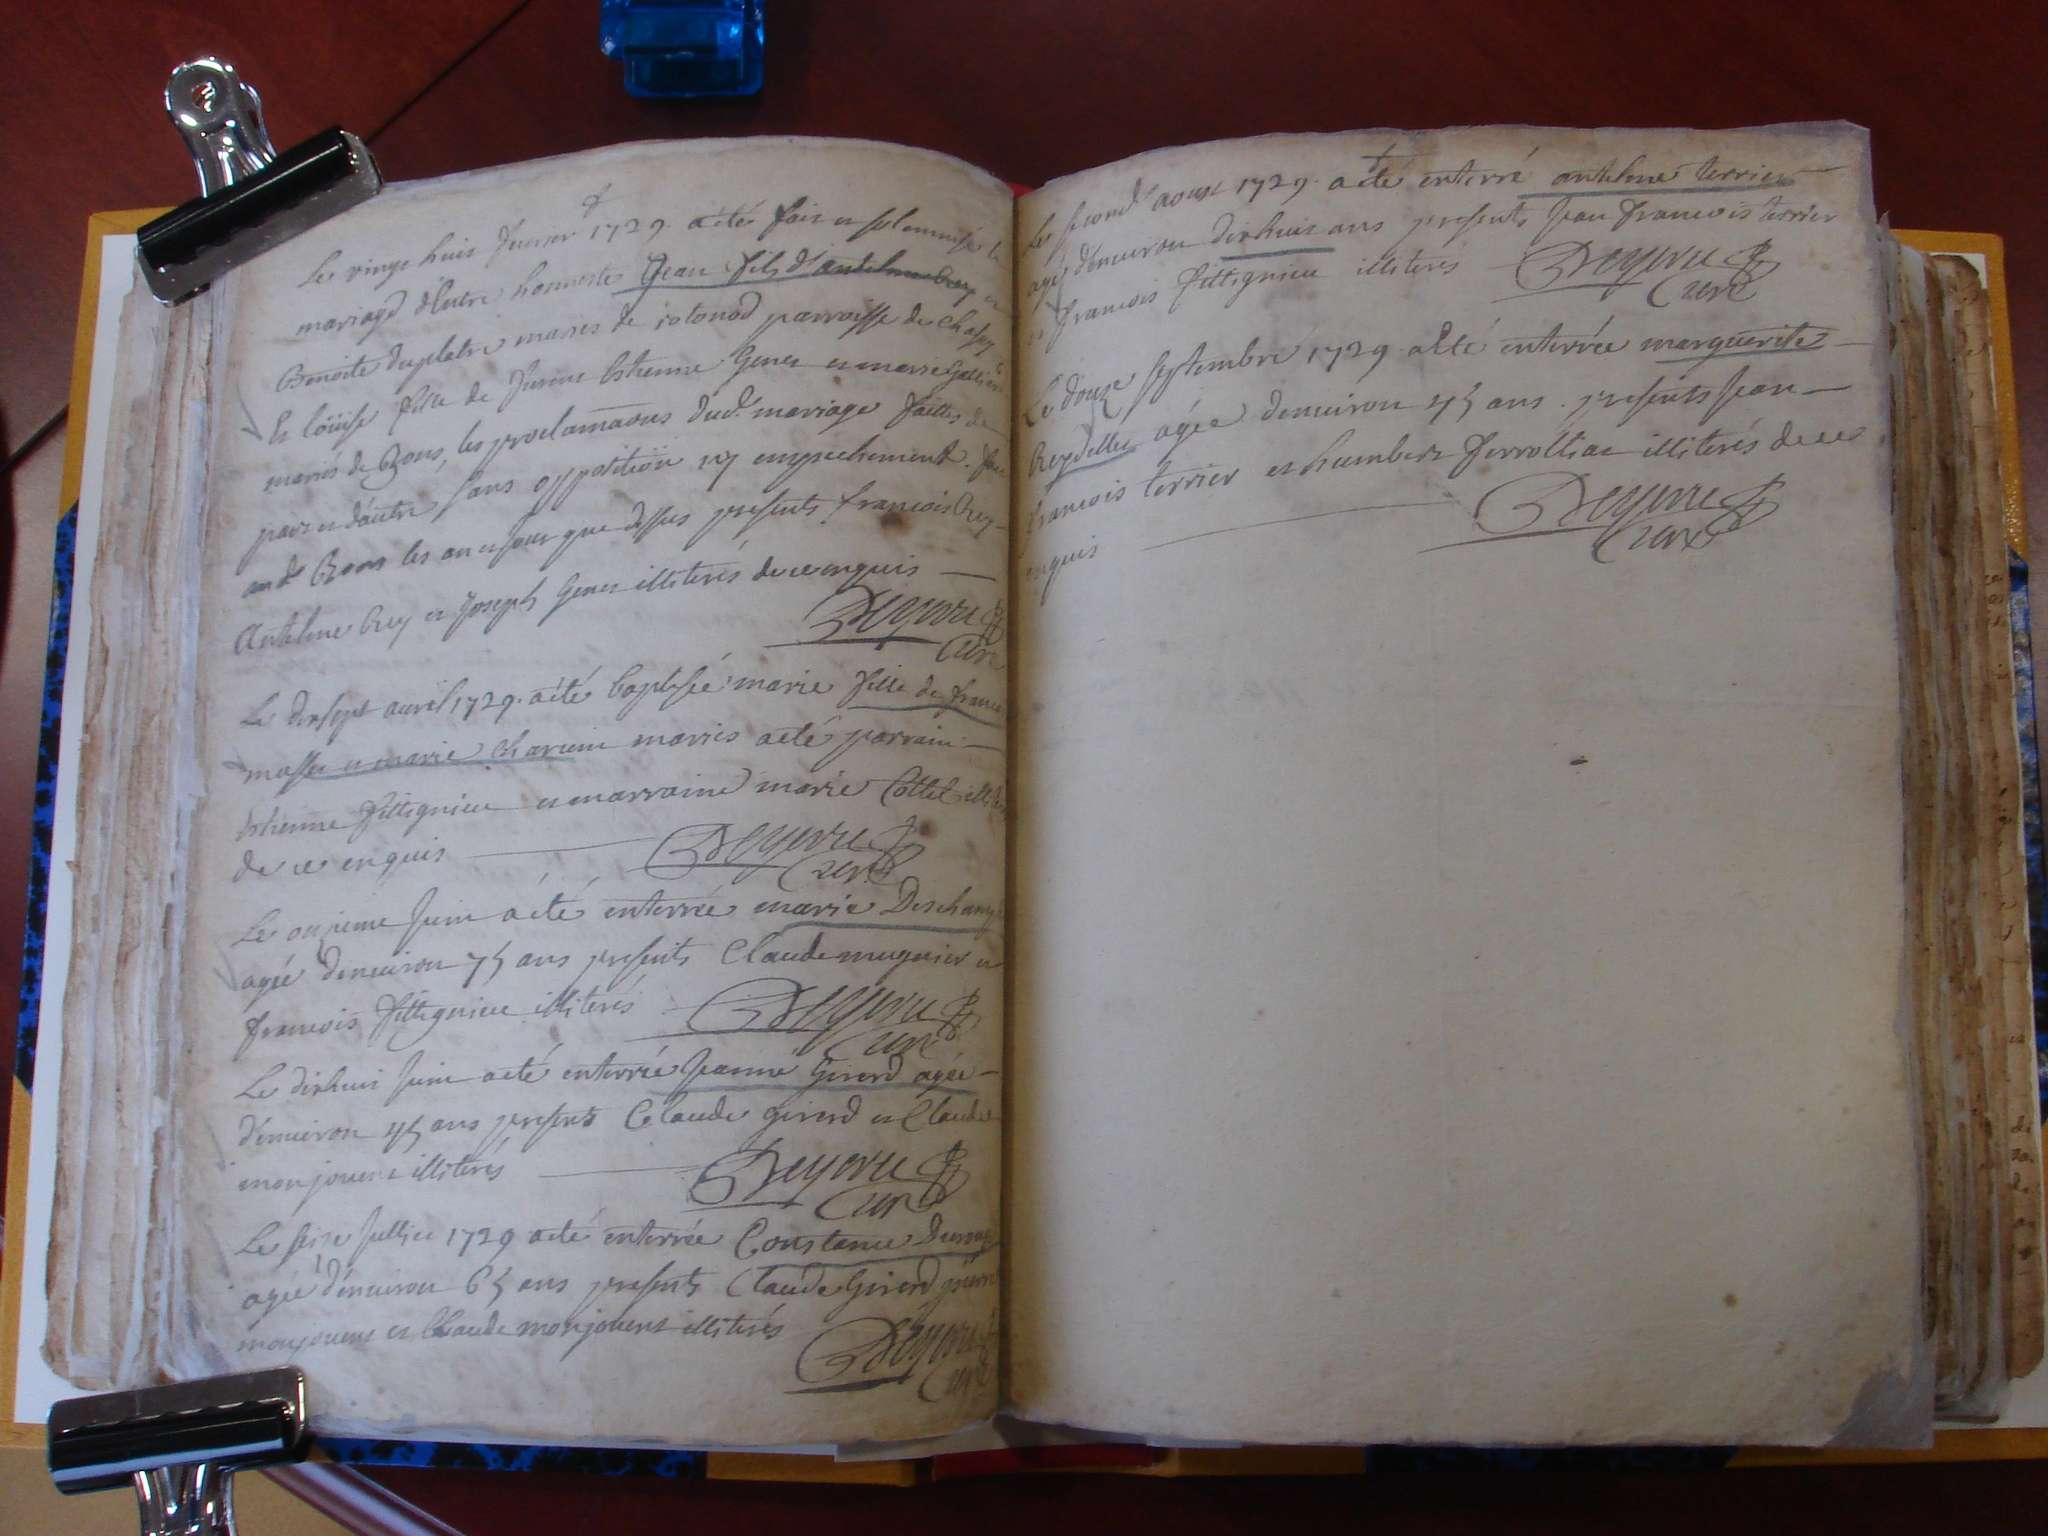 Le vingt huit feurier 1729. a été fait et solemnisé le
mariage d'Entre honneste Jean fils d'antelme Rey et
Benoite duplatre mariés de rotonod parroisse de
Et loüise fille de Estienne Genet et marie
mariés de Bons, les proclamaõns dud.t mariage faittes de
part et d'autre sans oppotition ny empeschement.
aud.t Bons les an et jour que dessus presents francois Rey
Antelme Rey et Joseph Genet illiterés de ce enquis
Curé
Le dixsept auril 1729. a été baptisée marie fille de
et marie mariés a eté parrain
Estienne fittignieu et marraine marie Collet
de ce enquis
Curé
Le onzieme Juin a été enterrée marie Deschamp
agée d'enuiron 75 ans presents Claude mugnier et
francois fittignieu illiterés
Curé
Le dixhuit Juin a eté enterrée Jeanne Girerd agée
d'enuiron 45 ans presents Claude Girerd et Claude
monjouent illiterés
Curé
Le seize Jullet 1729 a eté enterrée Constance
agée d'enuiron 65 ans presents Claude Girerd
monjouent et Claude monjouent illiterés
Curé
Le second aoust 1729. a eté enterré antelme terrier
agé d'enuiron dixhuit ans presents Jean francois terrier
et francois fittignieu illiterés
Curé
Le douze septembre 1729. a eté enterrée marguerite
Reydellet agée d'enuiron 45 ans. presents Jean
francois terrier et humbert illiterés de ce
enquis
Curé